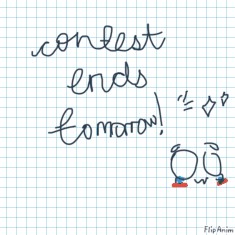 contest
ends
tomorrow!
FlipAnim